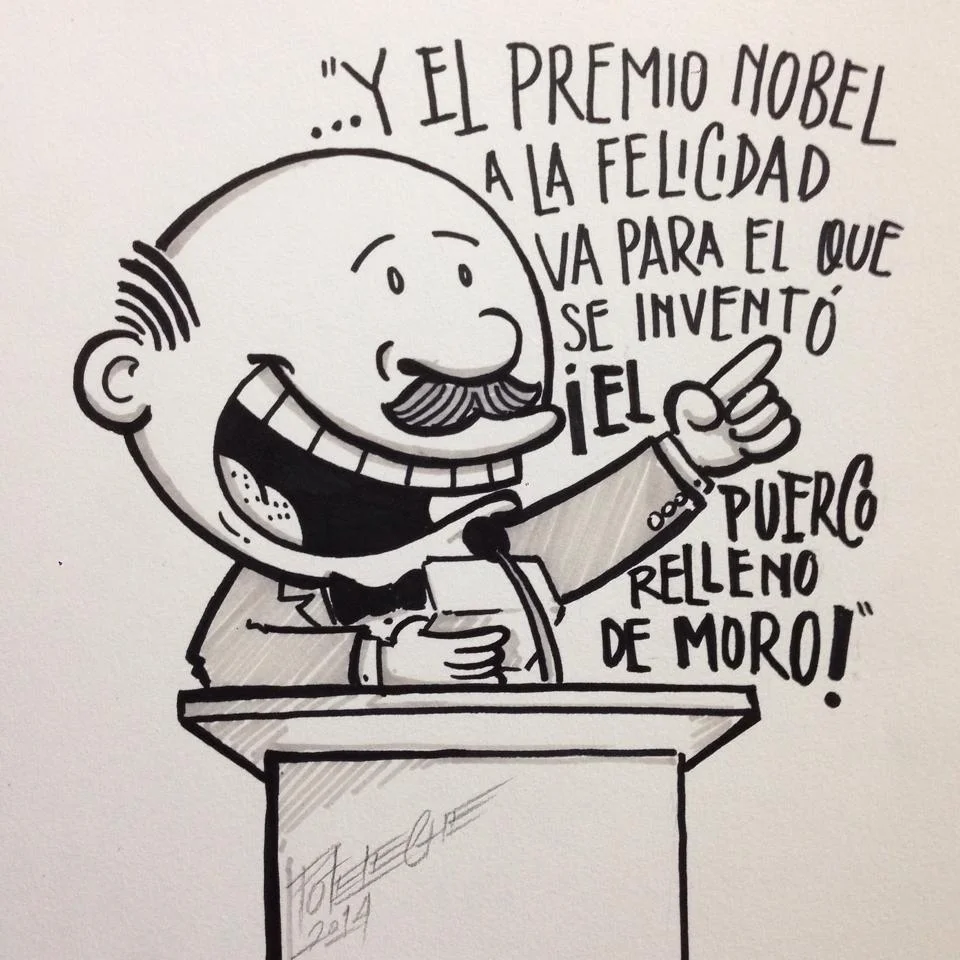 "...Y EL PREMIO NOBEL
A LA FELICIDAD
VA PARA EL QUE
SE INVENTÓ
¡EL
PUERCO
RELLENO
DE MORO!"
POTELECHE
2014